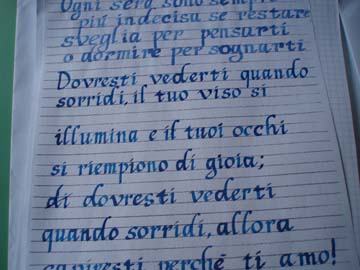 Ogni sera sono sempre
più indecisa se restare
sveglia per pensarti
o dormire per sognarti
Dovresti vederti quando
sorridi, il tuo viso si
illumina e il tuoi occhi
si riempiono di gioia;
di dovresti vederti
quando sorridi, allora
capiresti perchè ti amo!